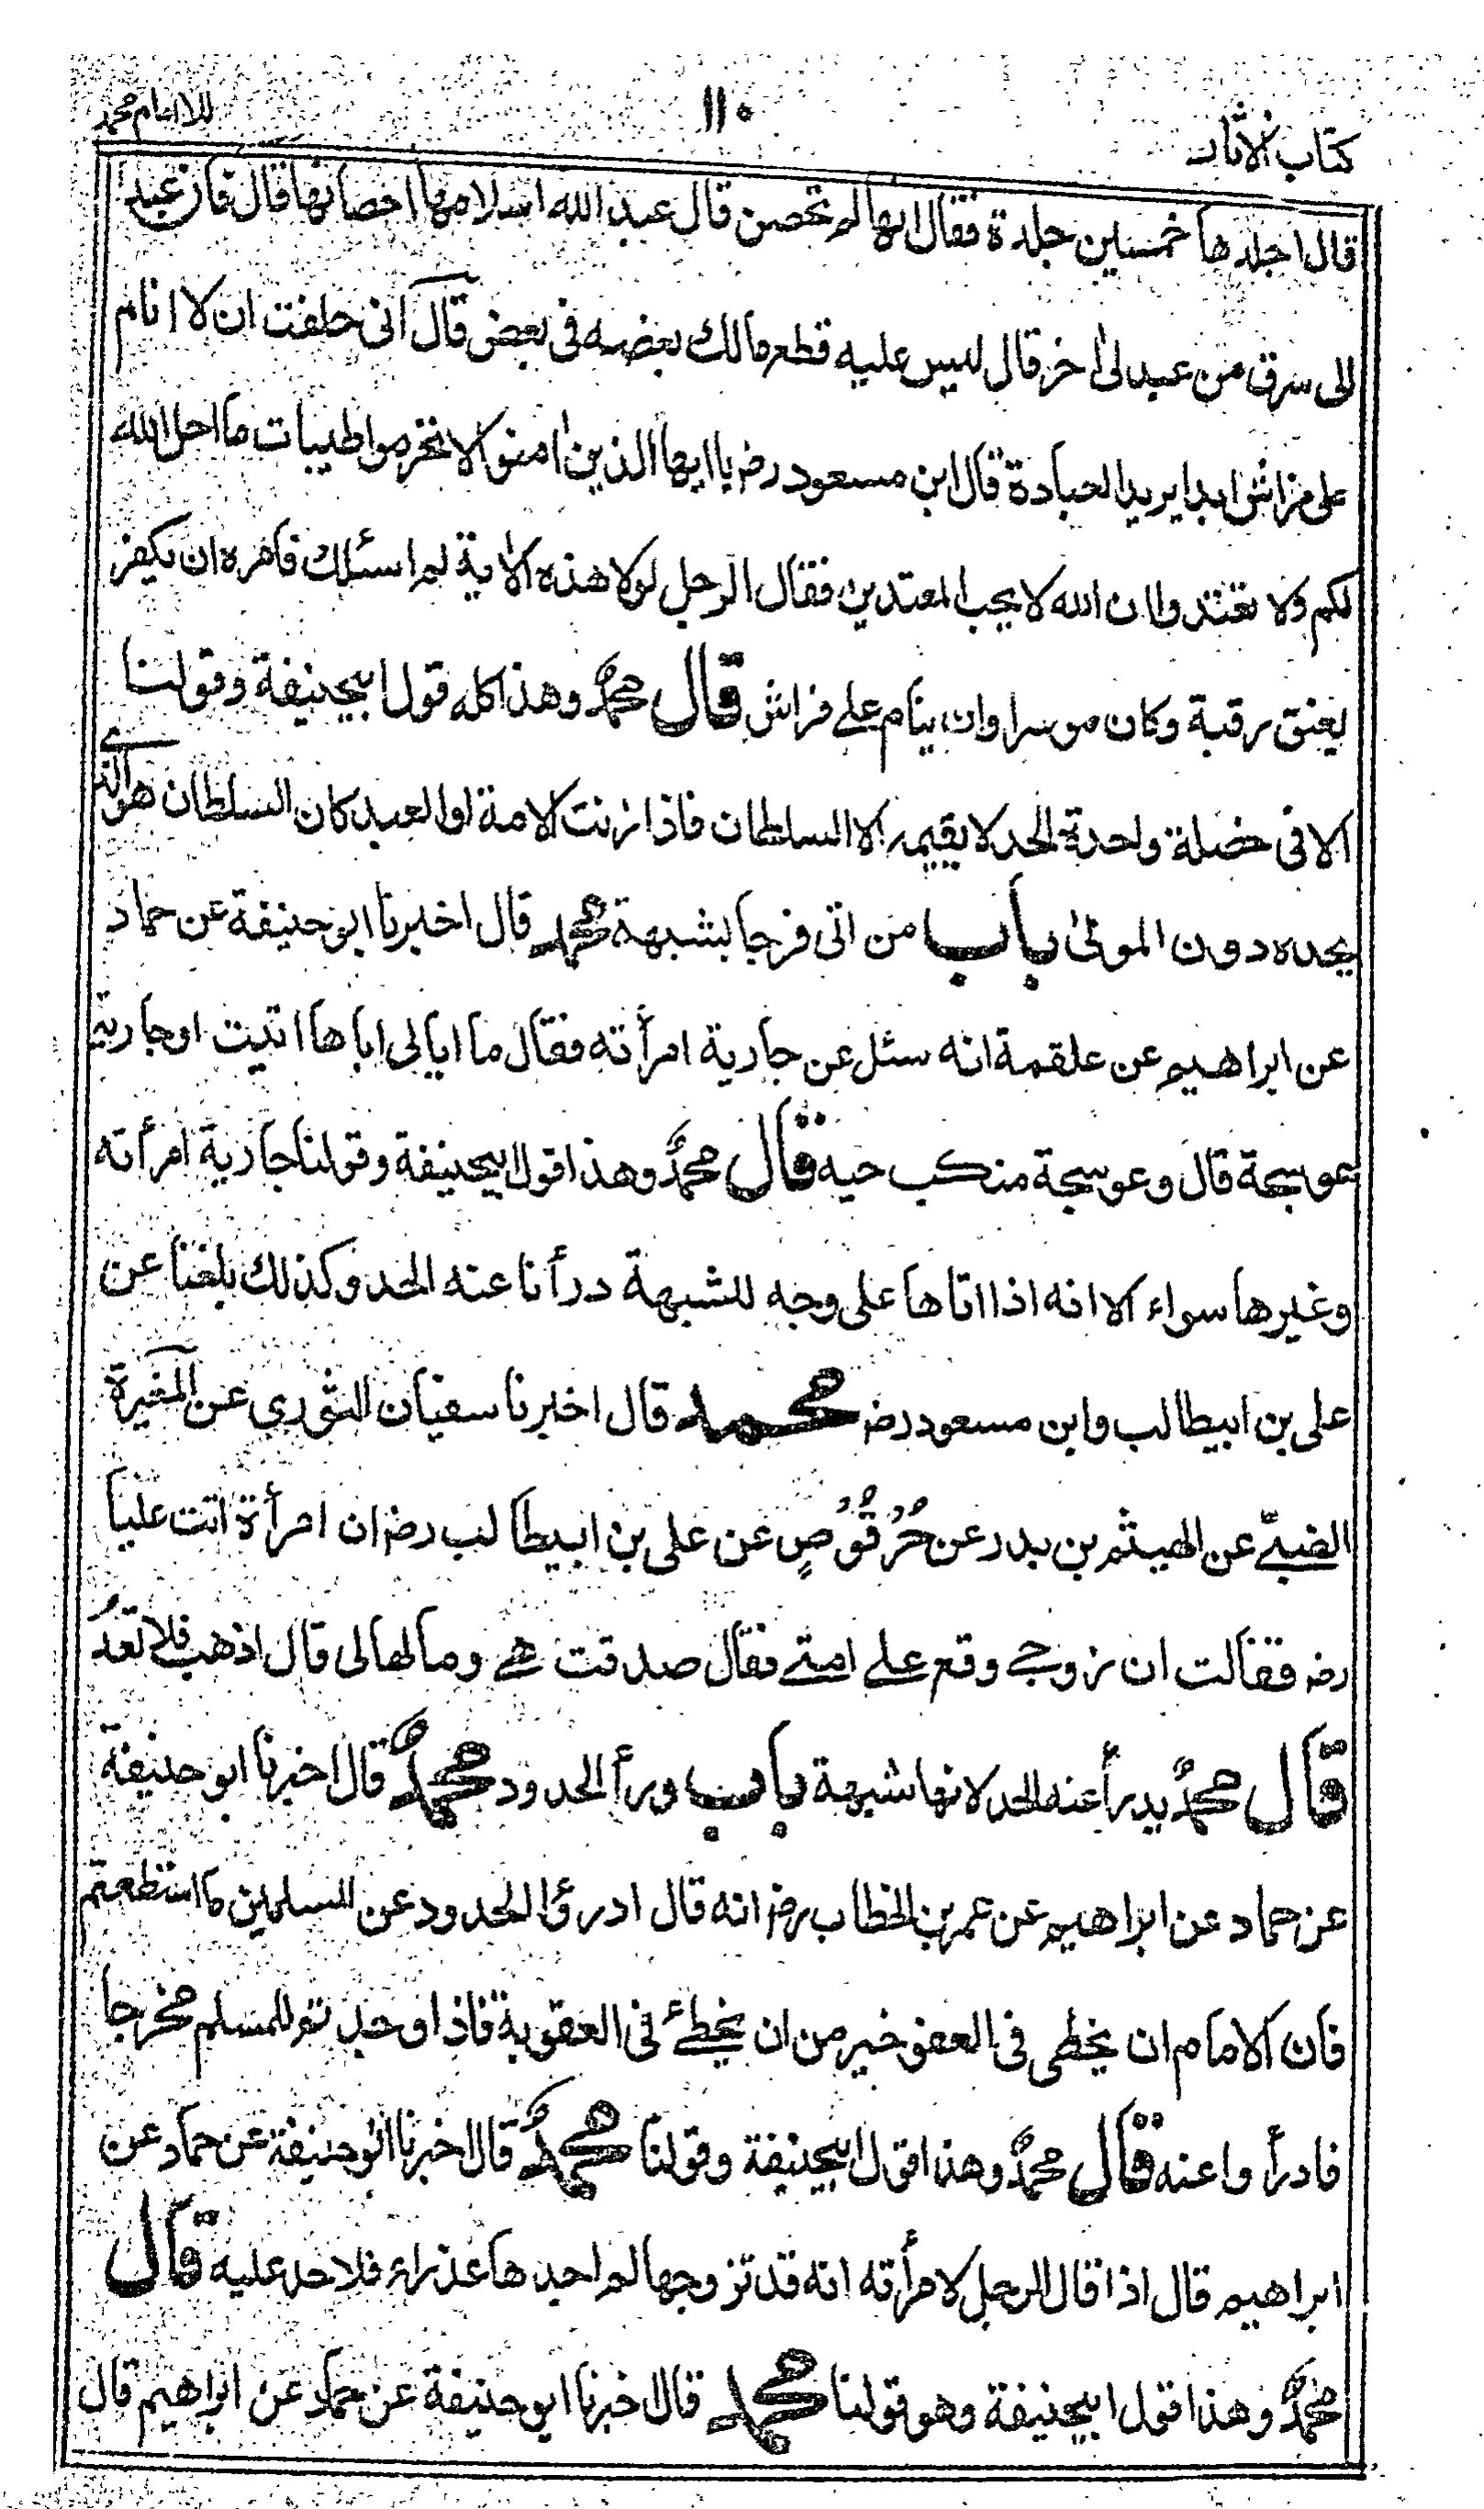 كتاب الآثار ١١٠ للامام محمد
قال اجلدها خمسين جلدة فقال انها لم تحصن قال عبد الله اسلامها احصانها قال فان عبد
لى سرق من عبد لى اٰخر قال ليس عليه قطع مالك بعضه فى بعض قال انى حلفت ان لا انام
على فراش ابدا يريد العبادة قال ابن مسعود رضـ يا ايها الذين اٰمنوا لا تحرموا طيبات ما احل الله
لكم ولا تعتدوا ان الله لا يحب المعتدين فقال الرجل لولا هذه الاٰية لم اسئلك فامره ان يكفر
يعتق رقبة وكان موسرا وان ينام على فراش قال محمدٌ وهذا كله قول ابيحنيفة وقولنا
الا فى خصلة واحدة الحد لا يقيمه الا السلطان فاذا زنت الامة او العبد كان السلطان هو الذى
يحده دون المولىٰ باب من اتى فرجا بشبهة محمد قال اخبرنا ابو حنيفة عن حماد
عن ابراهيم عن علقمة انه سئل عن جارية امرأته فقال ما ابالى اياها اتيت او جارية
عوسجة قال وعوسجة منكب حيه قال محمدٌ وهذا قول ابيحنيفة وقولنا جارية امرأته
وغيرها سواء الا انه اذا اتاها على وجه الشبهة درأنا عنه الحد وكذلك بلغنا عن
على بن ابيطالب وابن مسعود رضـ محمد قال اخبرنا سفيان الثورى عن المغيرة
الضبّى عن الهيثم بن بدر عن حُرْقُوُصٍ عن على بن ابيطالب رضـ ان امرأة اتت عليا
رضـ فقالت ان زوجى وقع على امتى فقال صدقت هى ومالها لى قال اذهب فلا تعدُ
قال محمدٌ يدرأ عنه الحد لانها شبهة باب ورأ الحدود محمدٌ قال اخبرنا ابو حنيفة
عن حماد عن ابراهيم عن عمر بن الخطاب رضـ انه قال ادرؤا الحدود عن المسلمين ما استطعتم
فان الامام ان يخطى فى العفو خير من ان يخطئ فى العقوبة فاذا وجدتم للمسلم مخرجا
فادرأوا عنه قال محمدٌ وهذا قول ابيحنيفة وقولنا محمدٌ قال اخبرنا ابو حنيفة عن حماد عن
ابراهيم قال اذا قال الرجل لامرأته انه قد تزوجها لم اجدها عذراء فلا حد عليه قال
محمدٌ وهذا قول ابيحنيفة وهو قولنا محمد قال اخبرنا ابو حنيفة عن حماد عن ابراهيم قال